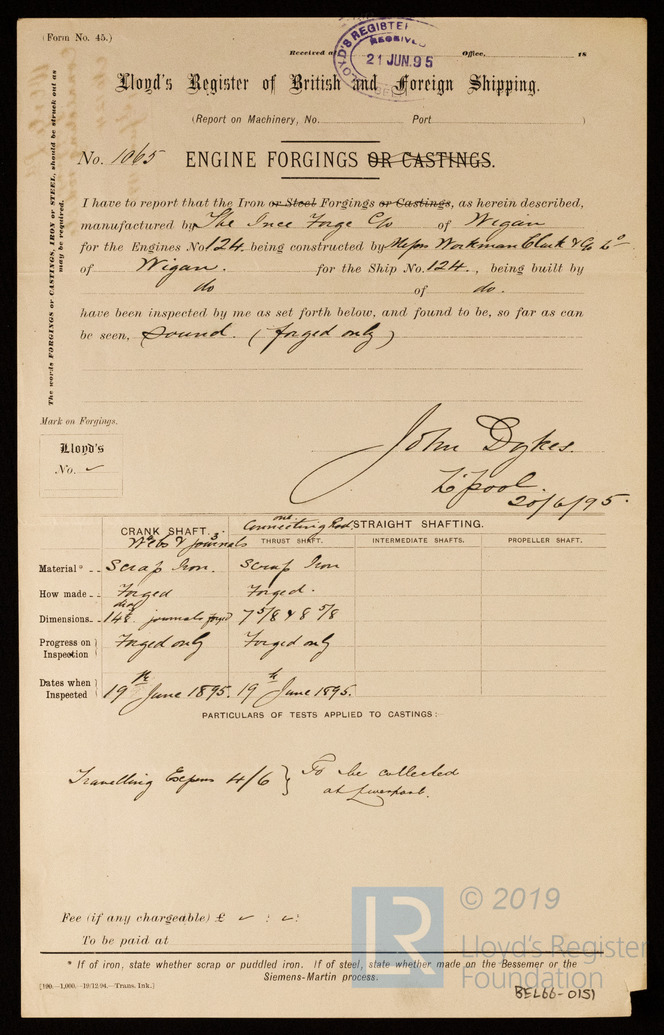 (Form No. 45.)
LLOYD'S REGISTER
RECEIVED
21 JUN.95
Received at Office, 18
Lloyd's Register of British and Foreign Shipping.
(Report on Machinery, No. Port )
No. 1065 ENGINE FORGINGS OR CASTINGS.
The words FORGINGS or CASTINGS, IRON or STEEL, should be struck out as
may be required.
I have to report that the Iron or Steel Forgings or Castings, as herein described,
manufactured by The Ince Forge Co of Wigan
for the Engines No 124 being constructed by Messrs Workman Clark & Co Ld
of Wigan. for the Ship No. 124., being built by
do of do.
have been inspected by me as set forth below, and found to be, so far as can
be seen, Sound. (forged only)
Mark on Forgings.
Lloyd's
No. ✓
John Dykes.
L'pool.
20/6/95.
CRANK SHAFT. one Connecting Rod STRAIGHT SHAFTING.
Webs & journals 3 THRUST SHAFT. INTERMEDIATE SHAFTS. PROPELLER SHAFT.
Material* Scrap Iron. Scrap Iron
How made Forged Forged.
Dimensions journals 7 5/8 & 8 5/8
Progress on Inspection Forged only Forged only
Dates when Inspected 19th June 1895. 19th June 1895.
PARTICULARS OF TESTS APPLIED TO CASTINGS:
Travelling Expens 4/6 } To be collected
at Liverpool.
Fee (if any chargeable) £ ✓ : ✓ :
To be paid at
* If of iron, state whether scrap or puddled iron. If of steel, state whether made on the Bessemer or the
Siemens-Martin process.
[190.—1,000.—19/12/94.—Trans. Ink.]
BEL66-0151
LR
© 2019
Lloyd's Register
Foundation